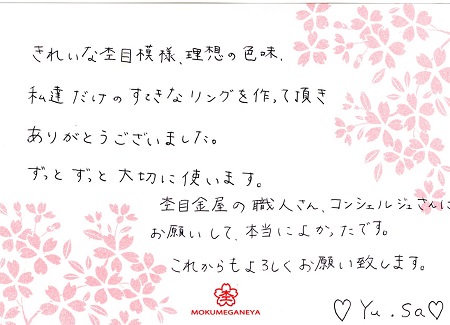 きれいな杢目模様、理想の色味、
私達だけのすてきなリングを作って頂き
ありがとうございました。
ずっと ずっと 大切に使います。
杢目金屋の職人さん、コンシェルジュさんに
お願いして、本当によかったです。
これからもよろしくお願い致します。
MOKUMEGANEYA
♡ Yu . Sa ♡